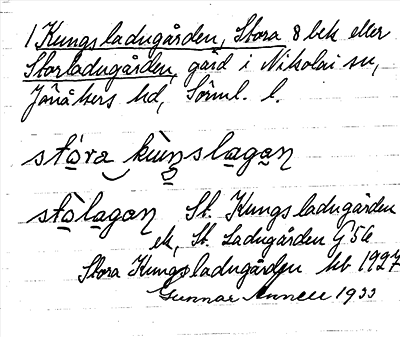 1 Kungsladugården, Stora 8 bek eller
Storladugården, gård i Nikolai sn,
Jönåkers hd, Sörml. l.
stóra kùnslagan
stòlagan St. Kungsladugården
ek, St. Ladugården G 56
Stora Kungsladugården hb 1927
Gunnar 1933